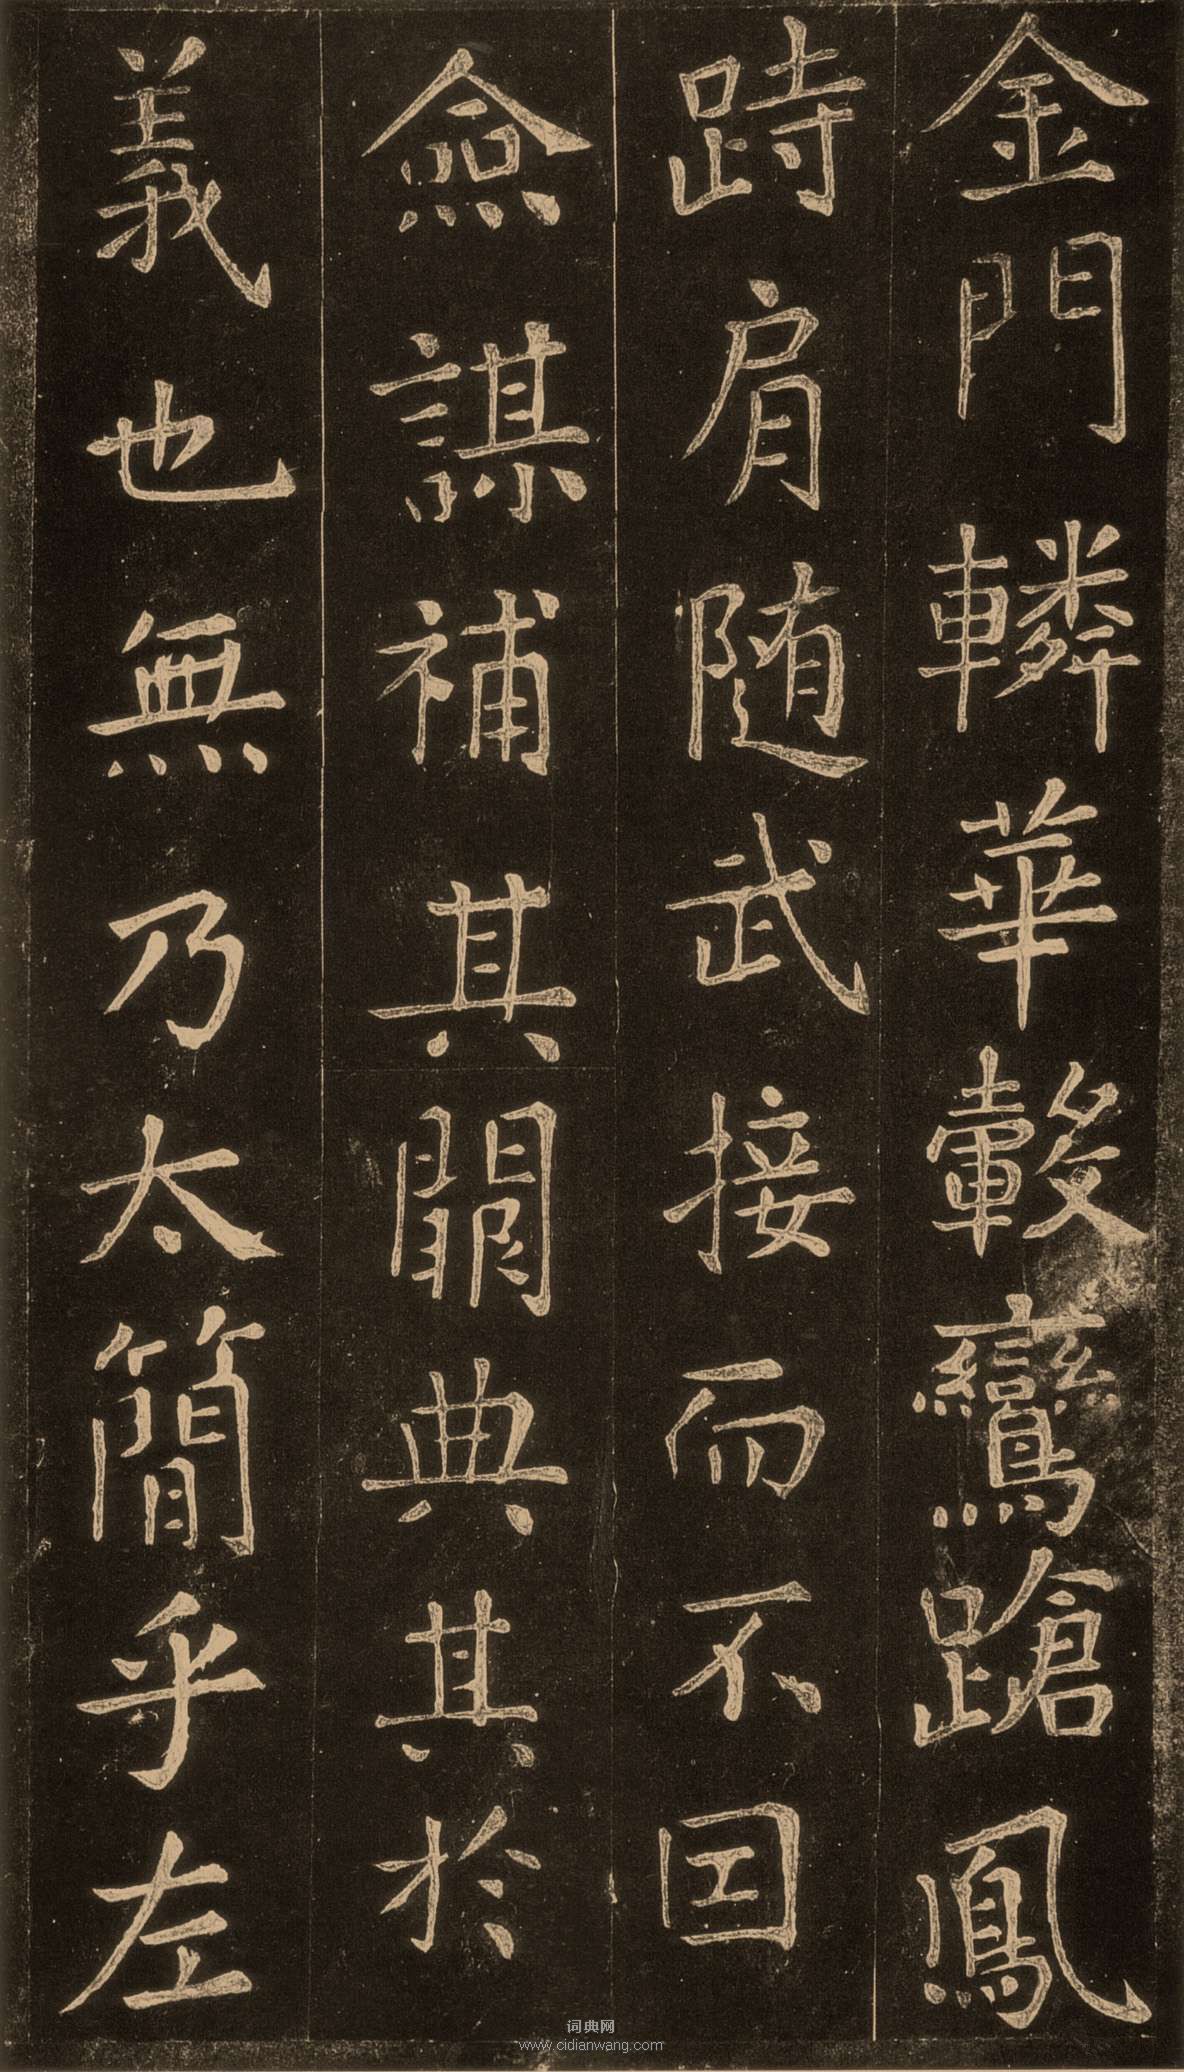 金門轔華轂鸞蹌鳳
跱肩随武接而不囙
僉謀補其闕典其於
義也無乃太簡乎左
词典网
www.cidianwang.com